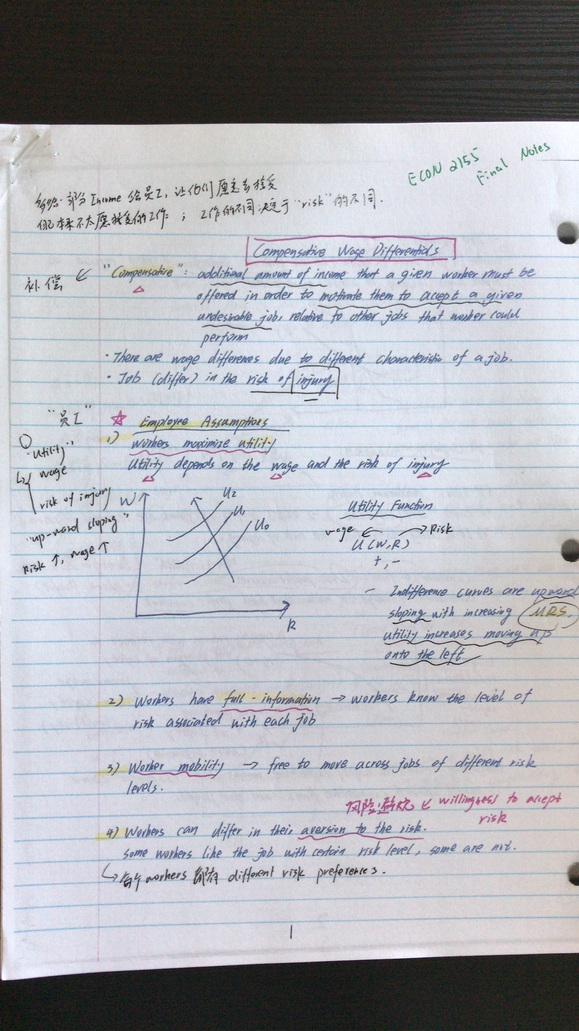 ECON 2155
Final Notes
部分Income 给员工, 让他们愿意去接受
他们本来不太愿接受的工作 ; 工作的不同决定于 "risk"的不同.
Compensative Wage Differentials
补偿 "Compensative": additional amount of income that a given worker must be
offered in order to motivate them to accept a given
undesirable job, relative to other jobs that worker could
perform
· There are wage differences due to different characteristic of a job.
· Job (differ) in the risk of injury
"员工" ☆ Employee Assumptions
1) Workers maximize utility
Utility depends on the wage and the risk of injury
"Utility"
wage
risk of injury
"upward sloping"
Risk ↑, wage ↑
W
U2
U1
U0
R
Utility Function
wage Risk
U(W,R)
+, -
- Indifference curves are upward
sloping with increasing MRS,
utility increases moving up
onto the left
2) Workers have full-information → workers know the level of
risk associated with each job
3) Worker mobility → free to move across jobs of different risk
levels.
风险 willingness to accept
risk
4) Workers can differ in their aversion to the risk.
some workers like the job with certain risk level, some are not.
每个workers 都有 different risk preferences.
1